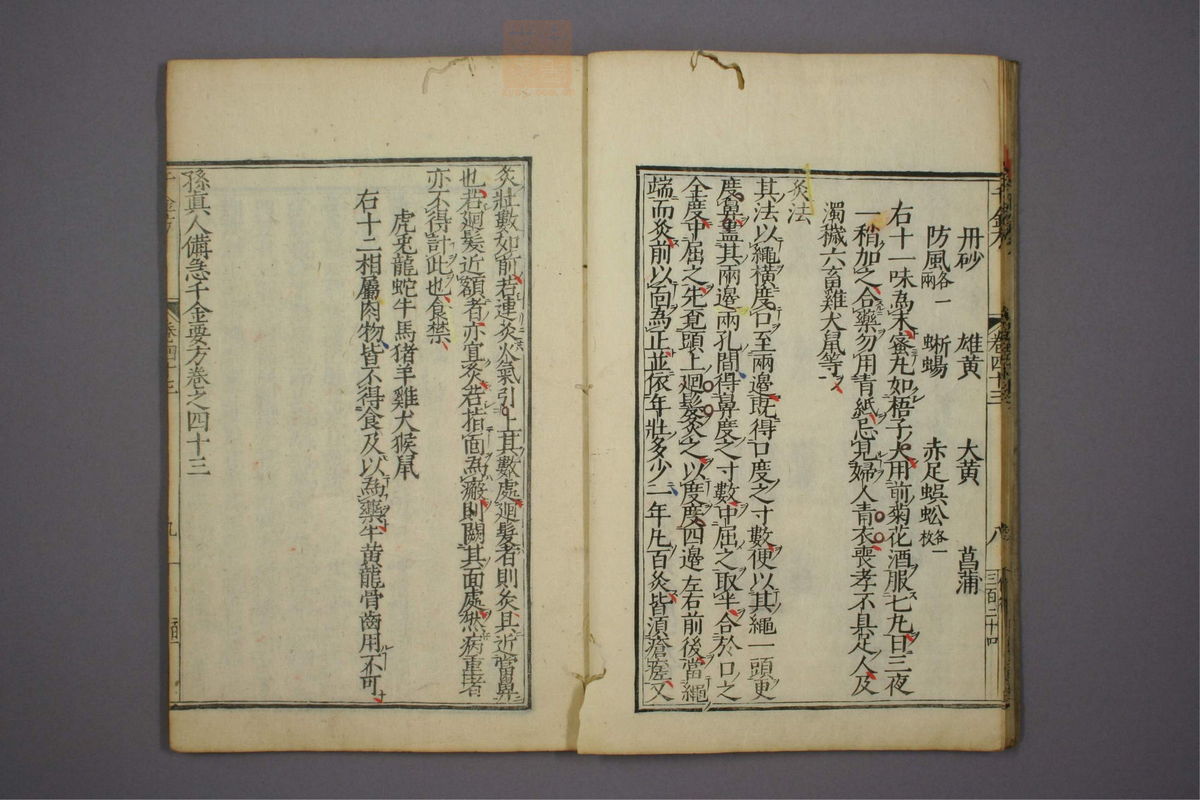 丹砂　雄黄　大黄　菖蒲
防風各一兩　蜥蜴　赤足蜈蚣各一枚
右十一味為末蜜丸如梧子大用前菊花酒服七丸日三夜
一稍加之合藥勿用青紙忌見婦人青衣喪孝不具足人及
濁穢六畜雞犬鼠等
灸法
其法以繩橫度口至兩邊既得口度之寸數便以其繩一頭更
度鼻盡其兩邊兩孔間得鼻度之寸數中屈之取半合於口之
全度中屈之先覔頭上廻髮灸之以度度四邊左右前後當繩
端而灸前以面為正並依年壯多少一年凡百灸皆須瘡瘥又
灸壯數如前若連灸火氣引上其數處廻髮者則灸其近當鼻
也若廻髮近額者亦宜灸若指面為癜則闕其面處然病重者
亦不得計此也食禁
虎兎龍蛇牛馬猪羊雞犬猴鼠
右十二相屬肉物皆不得食及以為藥牛黃龍骨齒用不可
孫真人備急千金要方卷之四十三
卷四十三
八
三百二十四
九